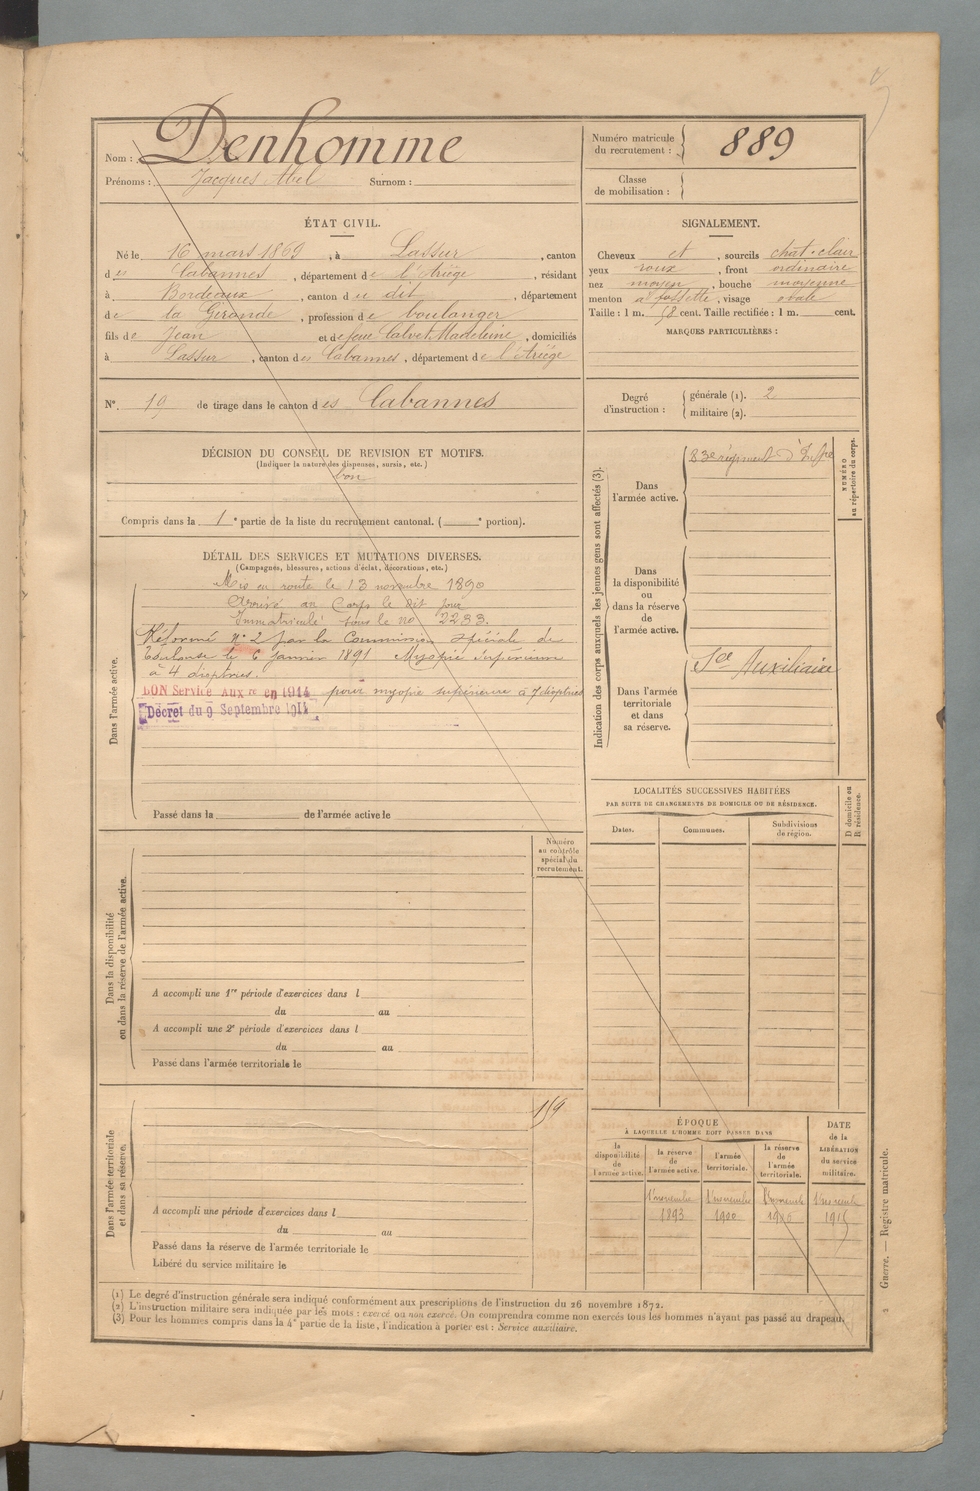 Nom : Denhomme
Prénoms : Jacques Abel Surnom :
Numéro matricule du recrutement : 889
Classe de mobilisation :
ÉTAT CIVIL.
Né le 16 mars 1869, à Lassur, canton
des Cabannes, département de l'Ariège, résidant
à Bordeaux, canton du dit, département
de la Gironde, profession de boulanger
fils de Jean et de feue Calvet Madeleine, domiciliés
à Lassur, canton des Cabannes, département de l'Ariège
SIGNALEMENT.
Cheveux et, sourcils chat. clair
yeux roux, front ordinaire
nez moyen, bouche moyenne
menton à fossette, visage ovale
Taille : 1 m. cent. Taille rectifiée : 1 m. cent.
MARQUES PARTICULIÈRES :
N° 19 de tirage dans le canton des Cabannes
Degré d'instruction : générale (1). 2
militaire (2).
DÉCISION DU CONSEIL DE REVISION ET MOTIFS.
(Indiquer la nature des dispenses, sursis, etc.)
bon
Compris dans la 1e partie de la liste du recrutement cantonal. ( e portion).
DÉTAIL DES SERVICES ET MUTATIONS DIVERSES.
(Campagnes, blessures, actions d'éclat, décorations, etc.)
Dans l'armée active.
Mis en route le 13 novembre 1890
Arrivé au Corps le dit jour
Immatriculé sous le no 2233.
Réformé N° 2 par la Commission spéciale de
Toulouse le 6 janvier 1891 Myopie supérieure
à 4 dioptries.
BON Service Auxre en 1914 pour myopie supérieure à 7 dioptries
Décret du 9 Septembre 1914
Passé dans la de l'armée active le
Indication des corps auxquels les jeunes gens sont affectés (3).
NUMÉRO au répertoire du corps.
Dans l'armée active.
83e régiment d'Infie
Dans la disponibilité ou dans la réserve de l'armée active.
Dans l'armée territoriale et dans sa réserve.
Sce Auxiliaire
LOCALITÉS SUCCESSIVES HABITÉES
PAR SUITE DE CHANGEMENTS DE DOMICILE OU DE RÉSIDENCE.
Dates. Communes. Subdivisions de région. D domicile ou R résidence.
Dans la disponibilité ou dans la réserve de l'armée active.
Numéro au contrôle spécial du recrutement.
A accompli une 1re période d'exercices dans l
du au
A accompli une 2e période d'exercices dans l
du au
Passé dans l'armée territoriale le
Dans l'armée territoriale et dans sa réserve.
159
A accompli une période d'exercices dans l
du au
Passé dans la réserve de l'armée territoriale le
Libéré du service militaire le
ÉPOQUE
À LAQUELLE L'HOMME DOIT PASSER DANS
la disponibilité de l'armée active. la réserve de l'armée active. l'armée territoriale. la réserve de l'armée territoriale.
DATE de la LIBÉRATION du service militaire.
1 novembre 1 novembre 1 novembre 1 novembre
1893 1900 1915
Guerre. — Registre matricule.
(1) Le degré d'instruction générale sera indiqué conformément aux prescriptions de l'instruction du 26 novembre 1872.
(2) L'instruction militaire sera indiquée par les mots : exercé ou non exercé. On comprendra comme non exercés tous les hommes n'ayant pas passé au drapeau.
(3) Pour les hommes compris dans la 4e partie de la liste, l'indication à porter est : Service auxiliaire.